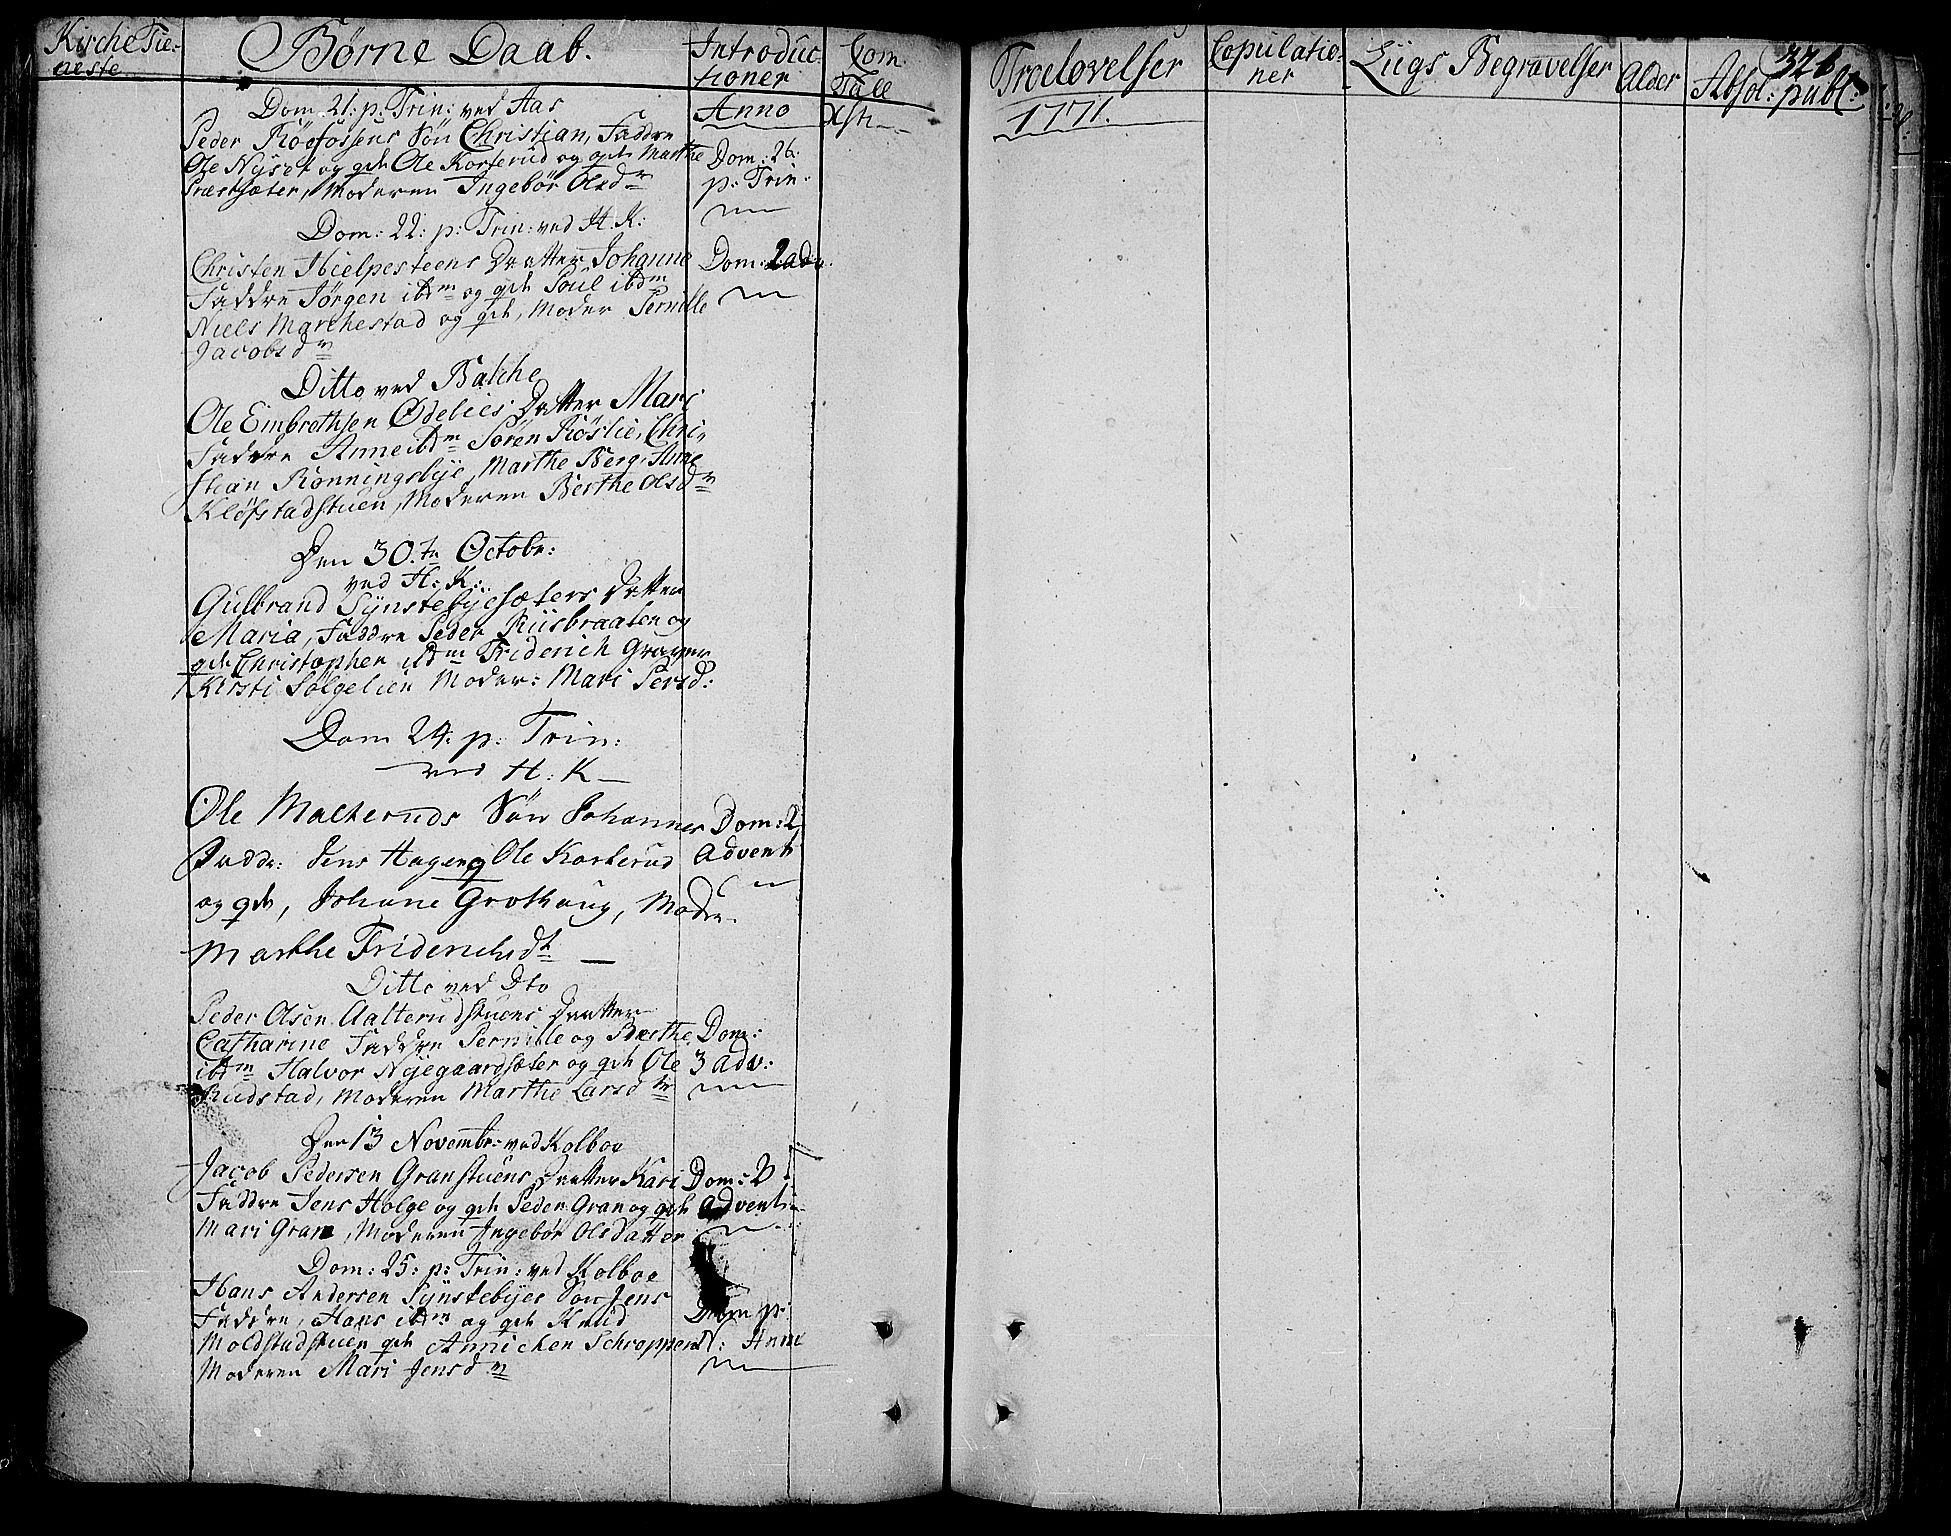 Kirche Tie-
neste
Børne Daab.
Introduc-
tioner
Com
Tall
Troelovelser
Copulatio-
ner
Liigs Begravelser
Alder
Absol: publ:
326
Anno
Xsti
1771.
Dom. 21. p. Trin: ved Aas
Peder Røøfossens Søn Christian, Faddre
Ole Nyset og qde Ole Korterud og qde Marthe
Præstsæter, Moderen Ingebor Olsdr
Dom: 26.
p: Trin:
Dom: 22: p: Trin: ved H. K:
Christen Hielpesteens Datter Johanne
Faddre Jørgen ibdm og qde Poul ibdm
Niels Marchestad og qde, Moder Pernille
Jacobsdr
Dom: 2 adv.
Ditto ved Bakke
Ole Embrethsen Ødelies Datter Mari
Faddre Anne ibdm Søren Røslie, Chri-
stian Rønningsbye, Marthe Berg, Anne
Kløfstadstuen, Moderen Berthe Olsdr
Den 30.te Octobr:
ved H: K:
Gulbrand Synstebyesæters Datter
Maria, Faddre Peder Riisbraaten og
qde Christopher ibdm Friderich Graver
Kirsti Sølgelien Moder: Mari Persd:
Dom 24. p: Trin:
ved H: K
Ole Malteruds Søn Johannes
Faddr: Jens Hagen, Ole Korterud
og qde, Johane Grothaug, Modr.
Marthe Friderichsdr
Dom: 2
Advent
Ditto ved Dto
Peder Olsen Aalterudstuens Datter
Catharine Faddre Pernille og Berthe
ibdm Halvor Nyegaardsæter og qde Ole
Rudstad, Moderen Marthe Larsdr
Dom:
3 adv:
Den 13 Novembr: ved Kolboe
Jacob Pedersen Granstuens Datter Kari
Faddre Jens Holge og qde Peder Gran og qde
Mari Gran, Moderen Ingebor Olsdatter
Dom: 2
Advent
Dom: 25: p: Trin: ved Kolboe
Hans Andersen Synstebyes Søn Jens
Faddre, Hans ibdm og qde Knud
Moldstadstuen qde Annichen Schroppen
Moderen Mari Jensdr
Dom p:
N: Anno